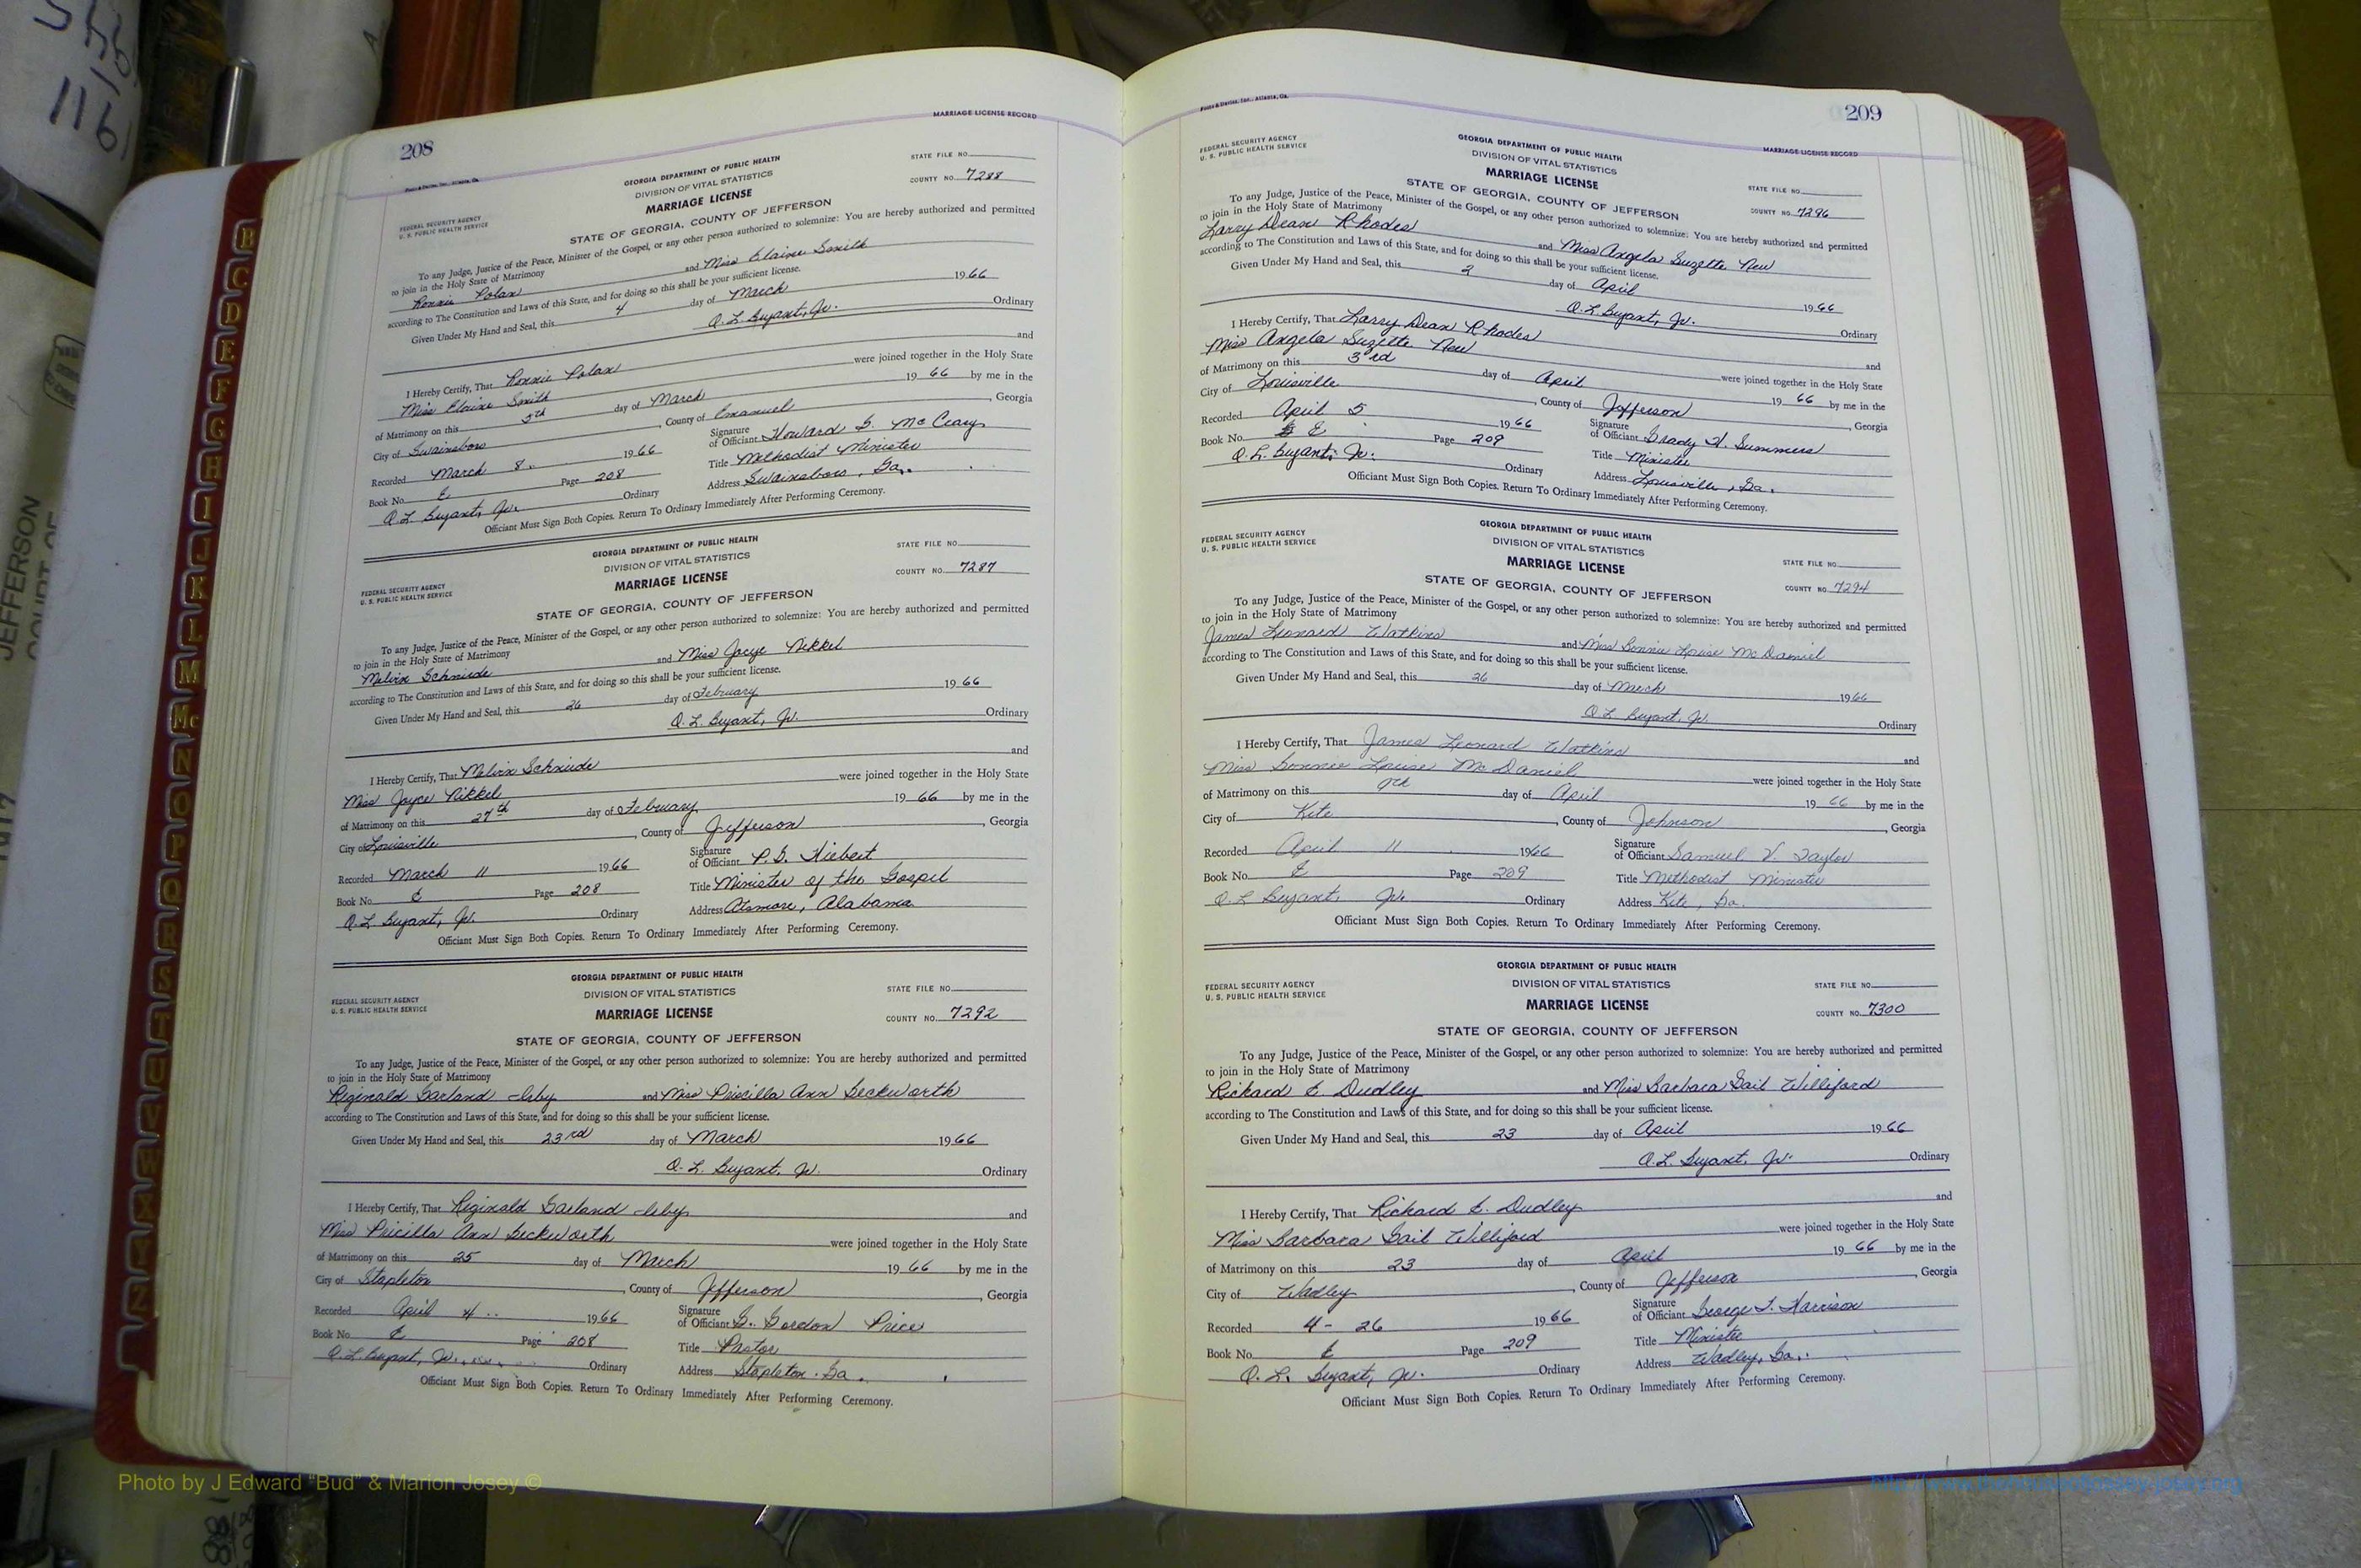 208
MARRIAGE LICENSE RECORD
GEORGIA DEPARTMENT OF PUBLIC HEALTH
DIVISION OF VITAL STATISTICS
MARRIAGE LICENSE
STATE OF GEORGIA, COUNTY OF JEFFERSON
FEDERAL SECURITY AGENCY
U. S. PUBLIC HEALTH SERVICE
STATE FILE NO.
COUNTY NO. 7288
To any Judge, Justice of the Peace, Minister of the Gospel, or any other person authorized to solemnize: You are hereby authorized and permitted
to join in the Holy State of Matrimony
Ronnie Polan and Miss Elaine Smith
according to The Constitution and Laws of this State, and for doing so this shall be your sufficient license.
Given Under My Hand and Seal, this 4 day of March 1966
Q. L. Bryant, Jr. Ordinary
I Hereby Certify, That Ronnie Polan and
Miss Elaine Smith were joined together in the Holy State
of Matrimony on this 5th day of March 1966 by me in the
City of Swainsboro, County of Emanuel, Georgia
Recorded March 8 1966 Signature of Officiant Howard G. McCeary
Book No. E Page 208 Title Methodist Minister
Q. L. Bryant, Jr. Ordinary Address Swainsboro, Ga.
Officiant Must Sign Both Copies. Return To Ordinary Immediately After Performing Ceremony.
GEORGIA DEPARTMENT OF PUBLIC HEALTH
DIVISION OF VITAL STATISTICS
MARRIAGE LICENSE
STATE OF GEORGIA, COUNTY OF JEFFERSON
FEDERAL SECURITY AGENCY
U. S. PUBLIC HEALTH SERVICE
STATE FILE NO.
COUNTY NO. 7287
To any Judge, Justice of the Peace, Minister of the Gospel, or any other person authorized to solemnize: You are hereby authorized and permitted
to join in the Holy State of Matrimony
Melvin Schmide and Miss Joyce Nikkel
according to The Constitution and Laws of this State, and for doing so this shall be your sufficient license.
Given Under My Hand and Seal, this 26 day of February 1966
Q. L. Bryant, Jr. Ordinary
I Hereby Certify, That Melvin Schmide and
Miss Joyce Nikkel were joined together in the Holy State
of Matrimony on this 27th day of February 1966 by me in the
City of Louisville, County of Jefferson, Georgia
Recorded March 11 1966 Signature of Officiant P. G. Hiebert
Book No. E Page 208 Title Minister of the Gospel
Q. L. Bryant, Jr. Ordinary Address Atmore, Alabama
Officiant Must Sign Both Copies. Return To Ordinary Immediately After Performing Ceremony.
GEORGIA DEPARTMENT OF PUBLIC HEALTH
DIVISION OF VITAL STATISTICS
MARRIAGE LICENSE
STATE OF GEORGIA, COUNTY OF JEFFERSON
FEDERAL SECURITY AGENCY
U. S. PUBLIC HEALTH SERVICE
STATE FILE NO.
COUNTY NO. 7292
To any Judge, Justice of the Peace, Minister of the Gospel, or any other person authorized to solemnize: You are hereby authorized and permitted
to join in the Holy State of Matrimony
Reginald Garland and Miss Priscilla Ann Beckworth
according to The Constitution and Laws of this State, and for doing so this shall be your sufficient license.
Given Under My Hand and Seal, this 23rd day of March 1966
Q. L. Bryant, Jr. Ordinary
I Hereby Certify, That Reginald Garland and
Miss Pricilla Ann Beckworth were joined together in the Holy State
of Matrimony on this 25 day of March 1966 by me in the
City of Stapleton, County of Jefferson, Georgia
Recorded April 4 1966 Signature of Officiant G. Gordon Price
Book No. E Page 208 Title Pastor
Q. L. Bryant, Jr. Ordinary Address Stapleton, Ga.
Officiant Must Sign Both Copies. Return To Ordinary Immediately After Performing Ceremony.
209
MARRIAGE LICENSE RECORD
GEORGIA DEPARTMENT OF PUBLIC HEALTH
DIVISION OF VITAL STATISTICS
MARRIAGE LICENSE
STATE OF GEORGIA, COUNTY OF JEFFERSON
FEDERAL SECURITY AGENCY
U. S. PUBLIC HEALTH SERVICE
STATE FILE NO.
COUNTY NO. 7296
To any Judge, Justice of the Peace, Minister of the Gospel, or any other person authorized to solemnize: You are hereby authorized and permitted
to join in the Holy State of Matrimony
Larry Dean Rhodes and Miss Angela Suzette New
according to The Constitution and Laws of this State, and for doing so this shall be your sufficient license.
Given Under My Hand and Seal, this 2 day of April 1966
Q. L. Bryant, Jr. Ordinary
I Hereby Certify, That Larry Dean Rhodes and
Miss Angela Suzette New were joined together in the Holy State
of Matrimony on this 3rd day of April 1966 by me in the
City of Louisville, County of Jefferson, Georgia
Recorded April 5 1966 Signature of Officiant Grady H. Summers
Book No. E Page 209 Title Minister
Q. L. Bryant, Jr. Ordinary Address Louisville, Ga.
Officiant Must Sign Both Copies. Return To Ordinary Immediately After Performing Ceremony.
GEORGIA DEPARTMENT OF PUBLIC HEALTH
DIVISION OF VITAL STATISTICS
MARRIAGE LICENSE
STATE OF GEORGIA, COUNTY OF JEFFERSON
FEDERAL SECURITY AGENCY
U. S. PUBLIC HEALTH SERVICE
STATE FILE NO.
COUNTY NO. 7294
To any Judge, Justice of the Peace, Minister of the Gospel, or any other person authorized to solemnize: You are hereby authorized and permitted
to join in the Holy State of Matrimony
James Leonard Watkins and Miss Bonnie Louise McDaniel
according to The Constitution and Laws of this State, and for doing so this shall be your sufficient license.
Given Under My Hand and Seal, this 26 day of March 1966
Q. L. Bryant, Jr. Ordinary
I Hereby Certify, That James Leonard Watkins and
Miss Bonnie Louise McDaniel were joined together in the Holy State
of Matrimony on this 9th day of April 1966 by me in the
City of Kite, County of Johnson, Georgia
Recorded April 11 1966 Signature of Officiant Samuel V. Taylor
Book No. E Page 209 Title Methodist Minister
Q. L. Bryant, Jr. Ordinary Address Kite, Ga.
Officiant Must Sign Both Copies. Return To Ordinary Immediately After Performing Ceremony.
GEORGIA DEPARTMENT OF PUBLIC HEALTH
DIVISION OF VITAL STATISTICS
MARRIAGE LICENSE
STATE OF GEORGIA, COUNTY OF JEFFERSON
FEDERAL SECURITY AGENCY
U. S. PUBLIC HEALTH SERVICE
STATE FILE NO.
COUNTY NO. 7300
To any Judge, Justice of the Peace, Minister of the Gospel, or any other person authorized to solemnize: You are hereby authorized and permitted
to join in the Holy State of Matrimony
Richard E. Dudley and Miss Barbara Gail Williford
according to The Constitution and Laws of this State, and for doing so this shall be your sufficient license.
Given Under My Hand and Seal, this 23 day of April 1966
Q. L. Bryant, Jr. Ordinary
I Hereby Certify, That Richard E. Dudley and
Miss Barbara Gail Williford were joined together in the Holy State
of Matrimony on this 23 day of April 1966 by me in the
City of Wadley, County of Jefferson, Georgia
Recorded 4-26 1966 Signature of Officiant George T. Harrison
Book No. E Page 209 Title Minister
Q. L. Bryant, Jr. Ordinary Address Wadley, Ga.
Officiant Must Sign Both Copies. Return To Ordinary Immediately After Performing Ceremony.
B
C
D
E
F
G
H
I
J
K
L
M
Mc
N
O
P
Q
R
S
T
U
V
W
X
Y
Z
116
JEFFERSON
Photo by J Edward "Bud" & Marion Josey ©